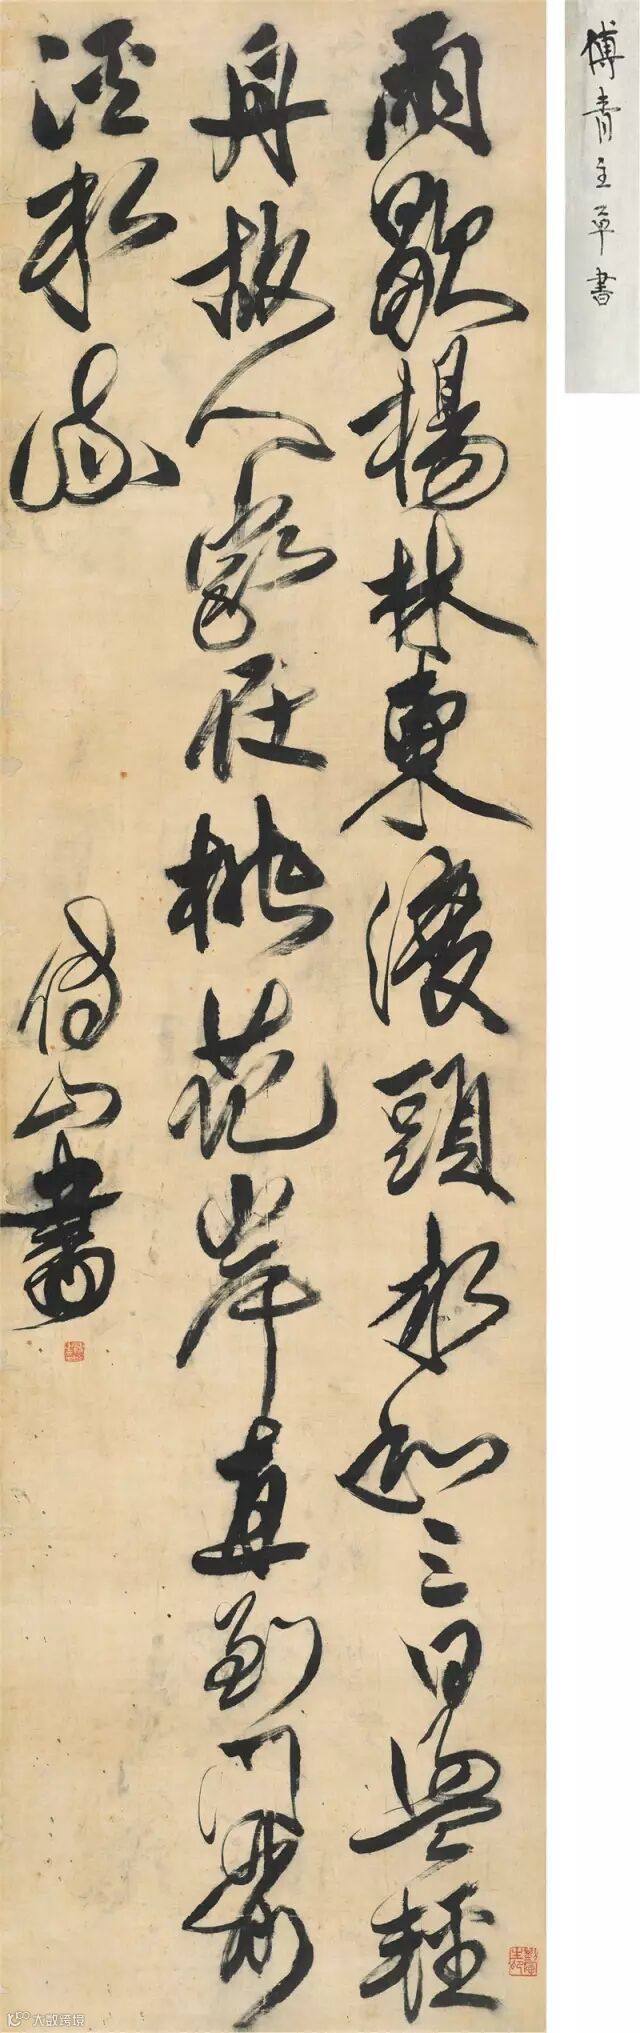 傅青主草書
雨歇楊林東渡頭永和三日盪輕
舟故人家在桃花岸直到門前
溪水流
傅山書
大数跨境